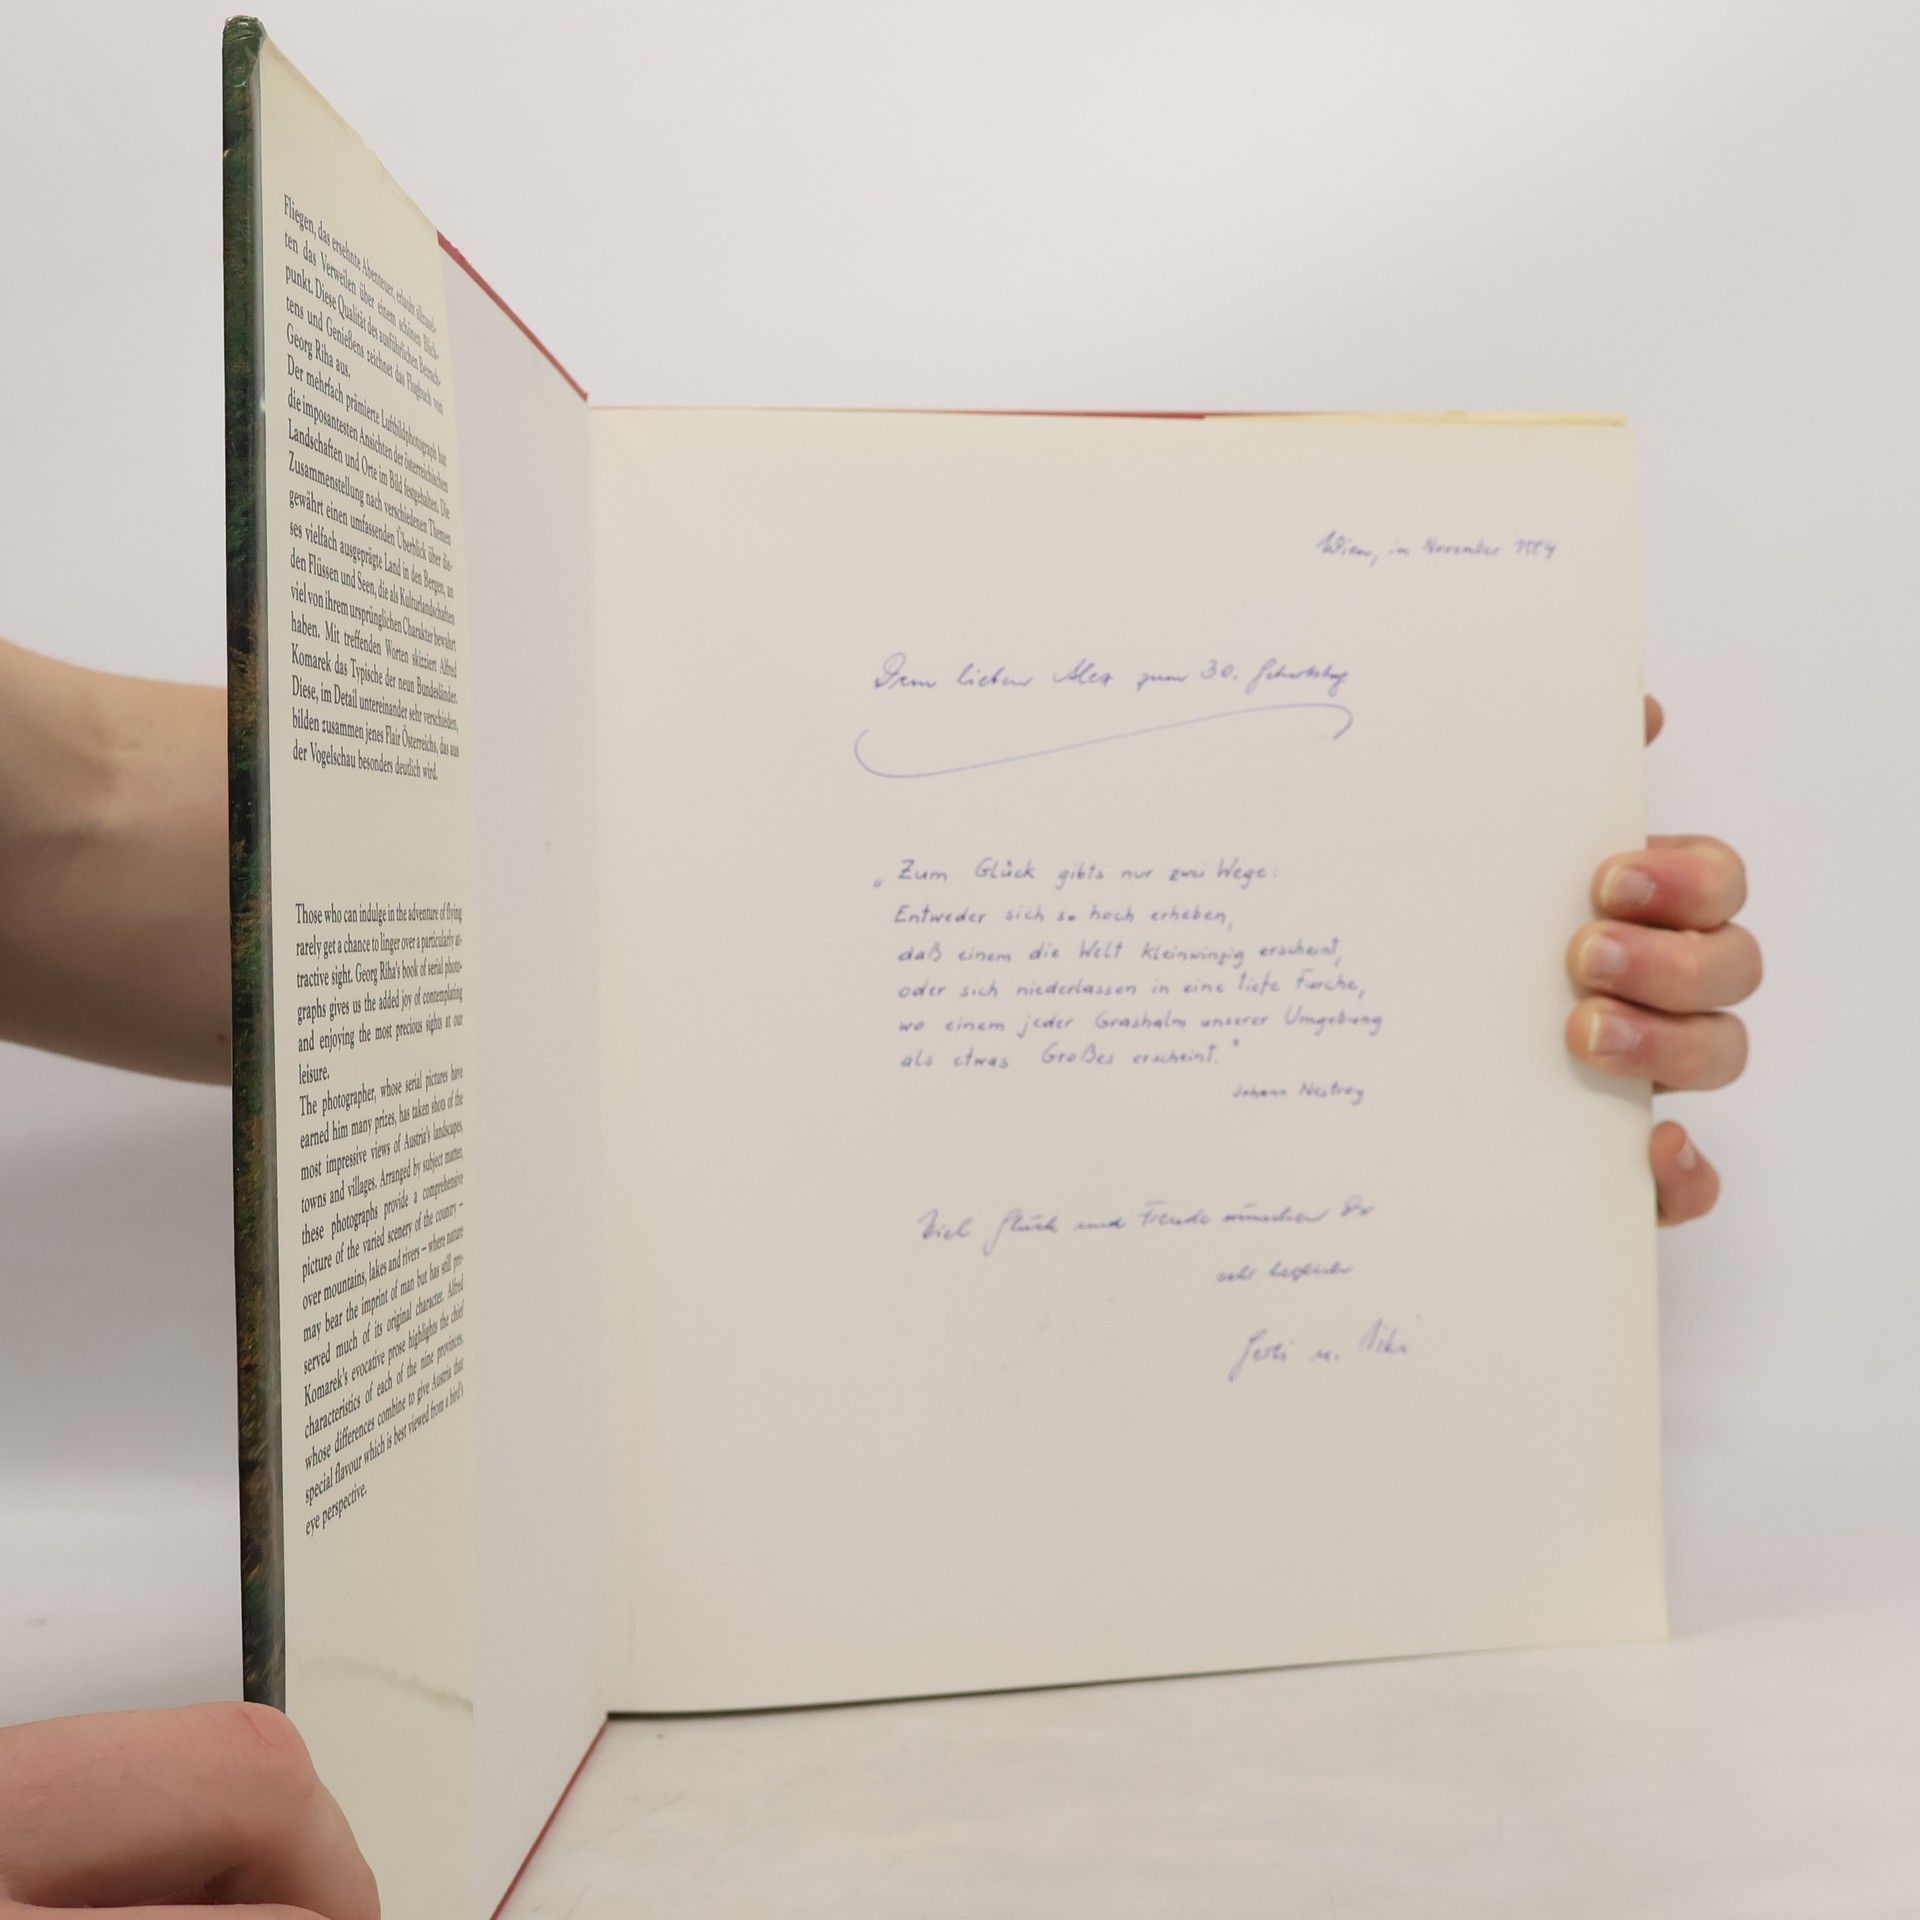 Fliegen, das ersehnte Abenteuer, erlaubt allzusel-
ten das Verweilen über einem schönen Blick-
punkt. Diese Qualität des ausführlichen Betrach-
tens und Genießens zeichnet das Flugbuch von
Georg Riha aus.
Der mehrfach prämierte Luftbildphotograph hat
die imposantesten Ansichten der österreichischen
Landschaften und Orte im Bild festgehalten. Die
Zusammenstellung nach verschiedenen Themen
gewährt einen umfassenden Überblick über die-
ses vielfach ausgeprägte Land in den Bergen, an
den Flüssen und Seen, die als Kulturlandschaften
viel von ihrem ursprünglichen Charakter bewahrt
haben. Mit treffenden Worten skizziert Alfred
Komarek das Typische der neun Bundesländer.
Diese, im Detail untereinander sehr verschieden,
bilden zusammen jenes Flair Österreichs, das aus
der Vogelschau besonders deutlich wird.
Those who can indulge in the adventure of flying
rarely get a chance to linger over a particularly at-
tractive sight. Georg Riha's book of serial photo-
graphs gives us the added joy of contemplating
and enjoying the most precious sights at our
leisure.
The photographer, whose serial pictures have
earned him many prizes, has taken shots of the
most impressive views of Austria's landscapes,
towns and villages. Arranged by subject matter,
these photographs provide a comprehensive
picture of the varied scenery of the country –
over mountains, lakes and rivers – where nature
may bear the imprint of man but has still pre-
served much of its original character. Alfred
Komarek's evocative prose highlights the chief
characteristics of each of the nine provinces,
whose differences combine to give Austria that
special flavour which is best viewed from a bird's
eye perspective.
Wien, im November
Dem lieben Alex zum 30. Geburtstag
„Zum Glück gibts nur zwei Wege:
Entweder sich so hoch erheben,
daß einem die Welt kleinwinzig erscheint,
oder sich niederlassen in eine tiefe Furche,
wo einem jeder Grashalm unserer Umgebung
als etwas Großes erscheint."
Johann Nestroy
Viel Glück und Freude wünschen Dir
sehr herzlich